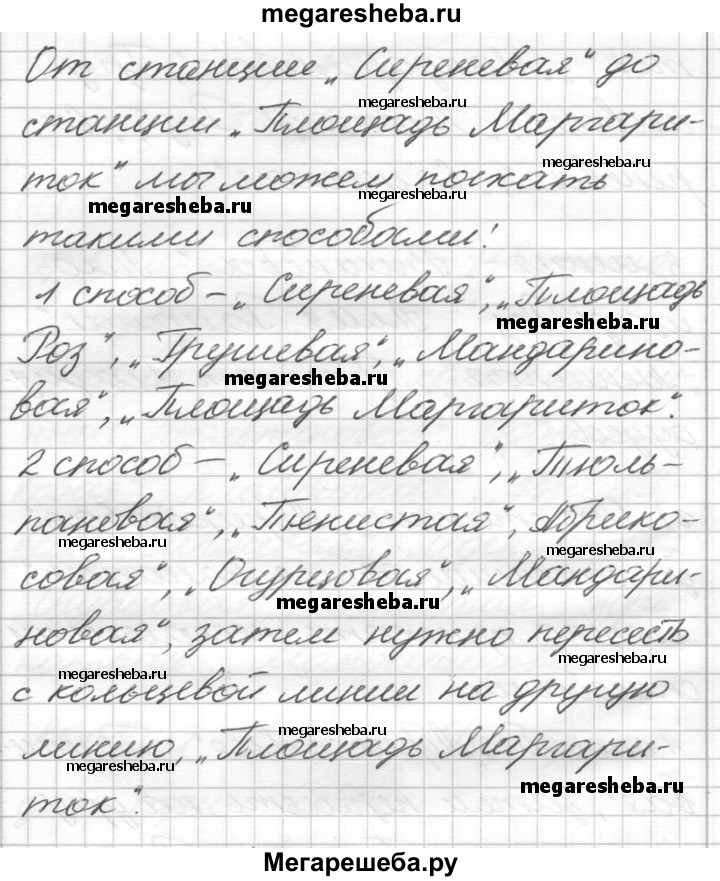 megaresheba.ru
От станции „Сиреневая“ до
megaresheba.ru
станции „Площадь Маргари-
megaresheba.ru
ток“ мы можем поехать
megaresheba.ru
такими способами:
1 способ – „Сиреневая“, „Площадь
megaresheba.ru
Роз“, „Грушевая“, „Мандарино-
megaresheba.ru
вая“, „Площадь Маргариток“.
2 способ – „Сиреневая“, „Тюль-
пановая“, „Тенистая“, Абрико-
megaresheba.ru
megaresheba.ru
совая“, „Огурцовая“, „Мандари-
megaresheba.ru
новая“, затем нужно пересесть
megaresheba.ru
megaresheba.ru
с кольцевой линии на другую
megaresheba.ru
линию, „Площадь Маргари-
megaresheba.ru
megaresheba.ru
ток“.
Мегарешеба.ру